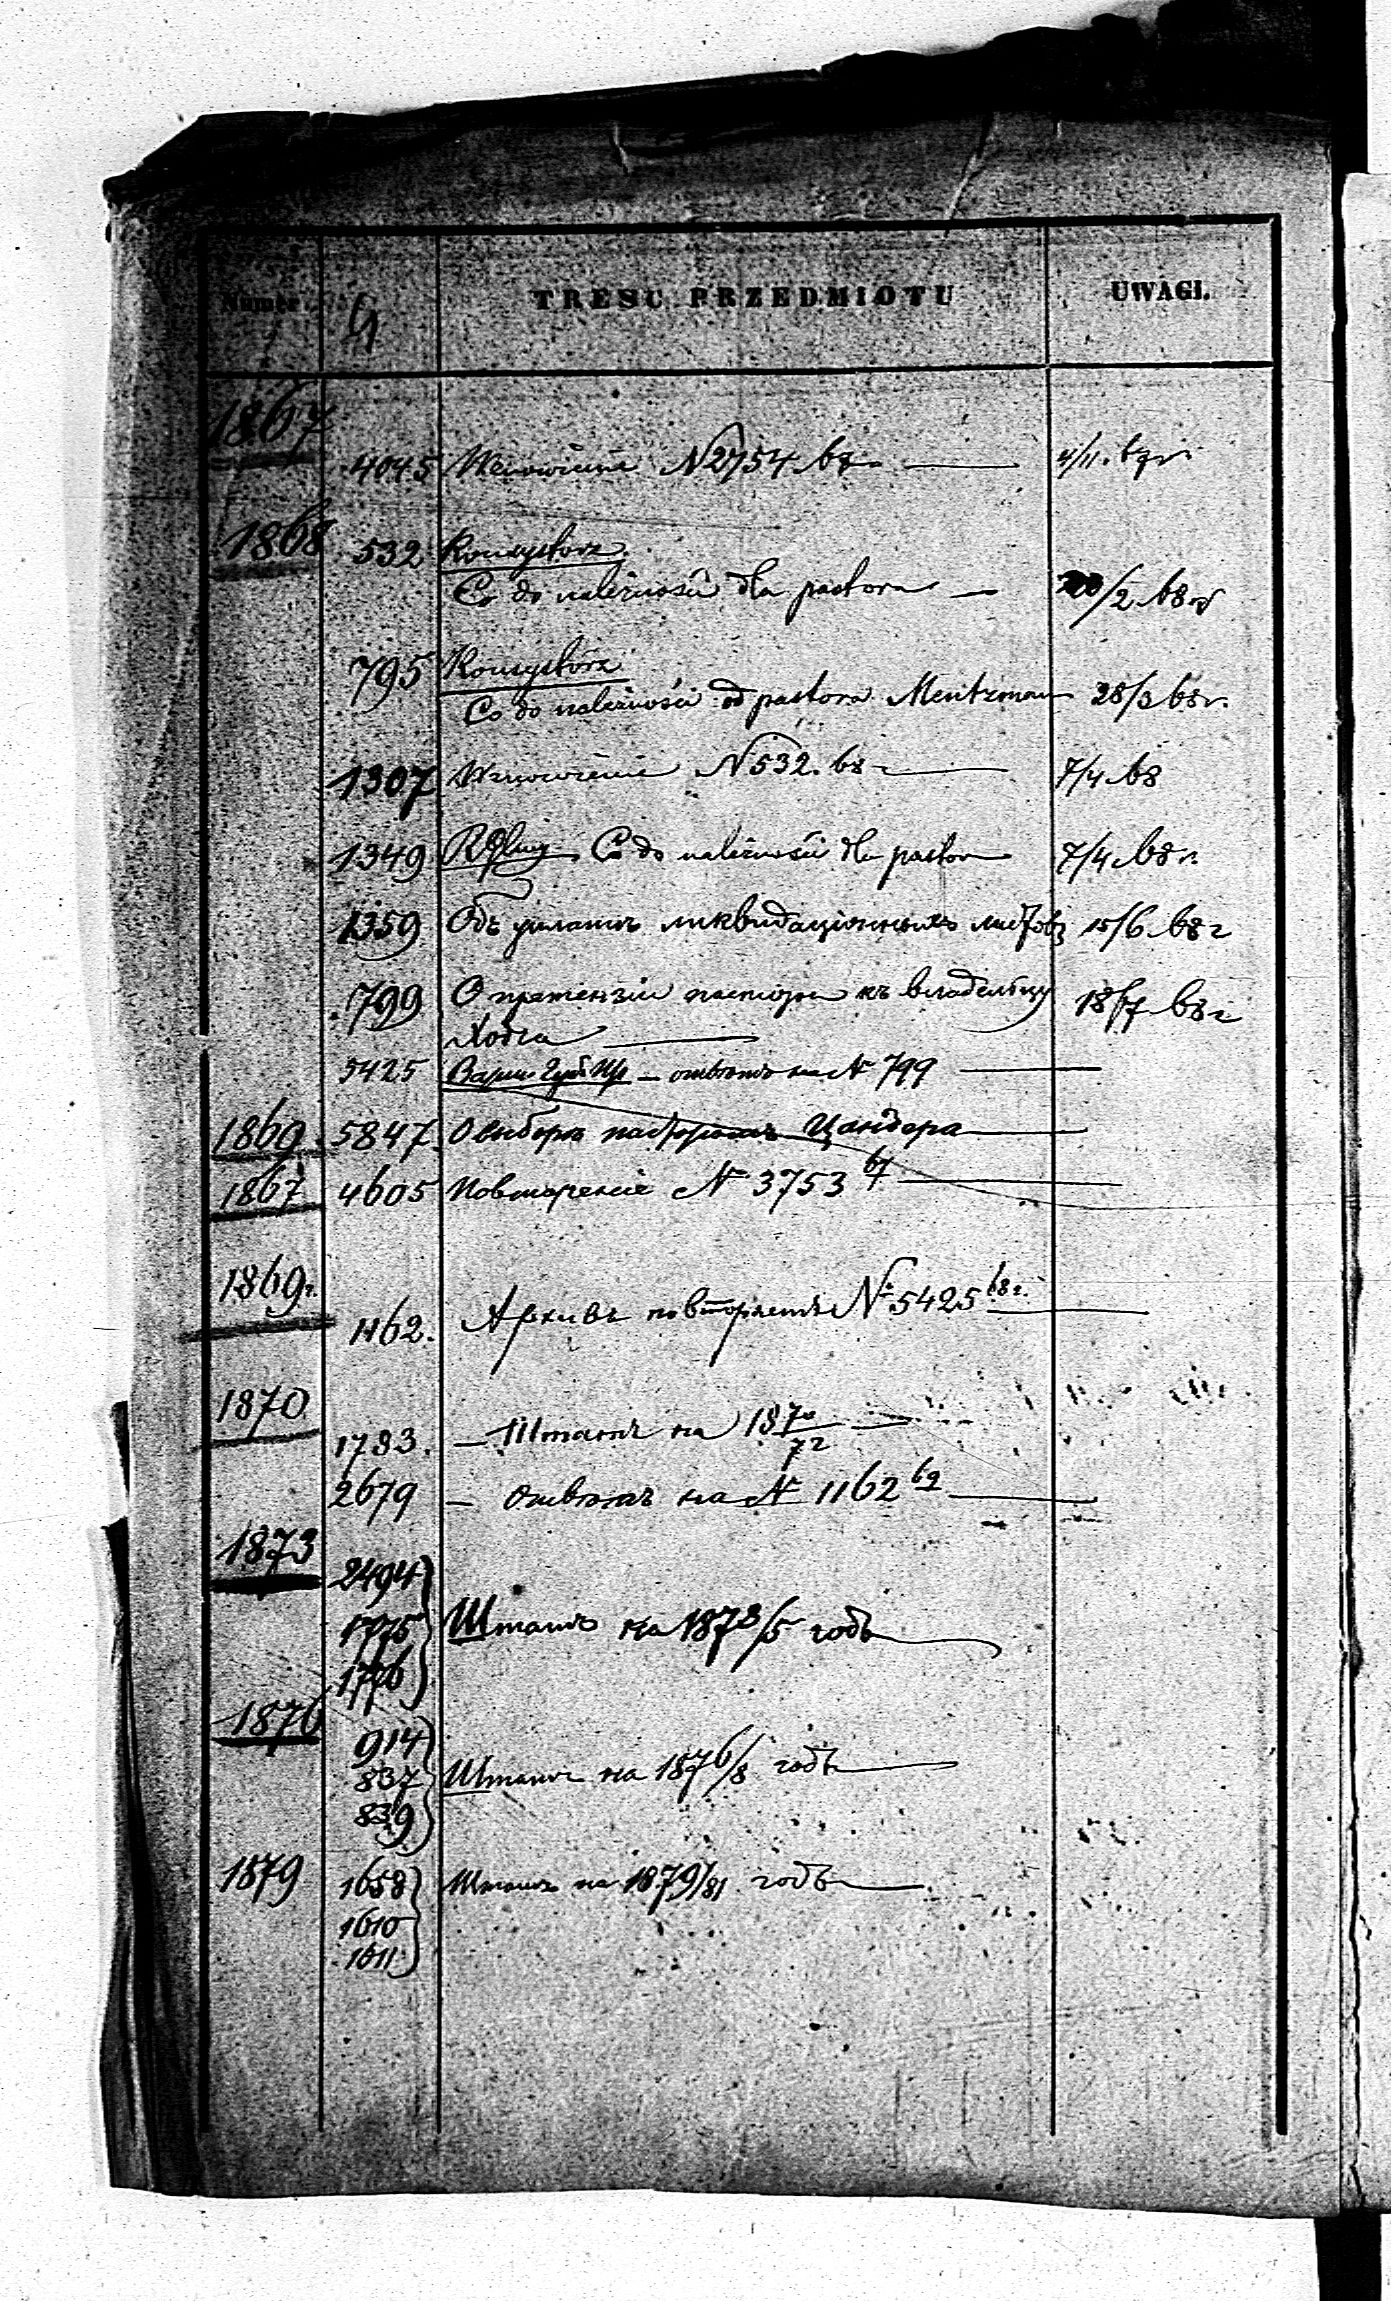 Numer
TRESC PRZEDMIOTU
UWAGI.
1867
4045 Wznowienie N 2754 67 4/11. 67 r
1868 532 Konsystorz
Co do należności dla pastora /2 68 r
795 Konsystorz
Co do należności od pastora Mentzman 28/3 68 r.
1307 Wznowienie N 532. 68 7/4 68
1349 Co do należności dla pastora 7/4 68 r
1359 Объ уплатѣ ликвидаціонныхъ листовъ 15/6 68 г
799 О претензіи пастора къ владѣльцу 18/7 68 г
Ходча
5425 Варш. Губ Пр — отвѣтъ на № 799
1869 5847 О выборѣ пастора Цандера
1867 4605 Повтореніе № 3753 67
1869 г.
1162. Архивъ повторяетъ № 5425 68 г.
1870
1783. — Штатъ на 1870/72
2679 — Отвѣтъ на № 1162 69
1873
2494
1775 Штатъ на 1873/5 годъ
1776
1876
914
837 Штатъ на 1876/8 годъ
839
1879 1658 Штатъ на 1879/81 годъ
1610
1611